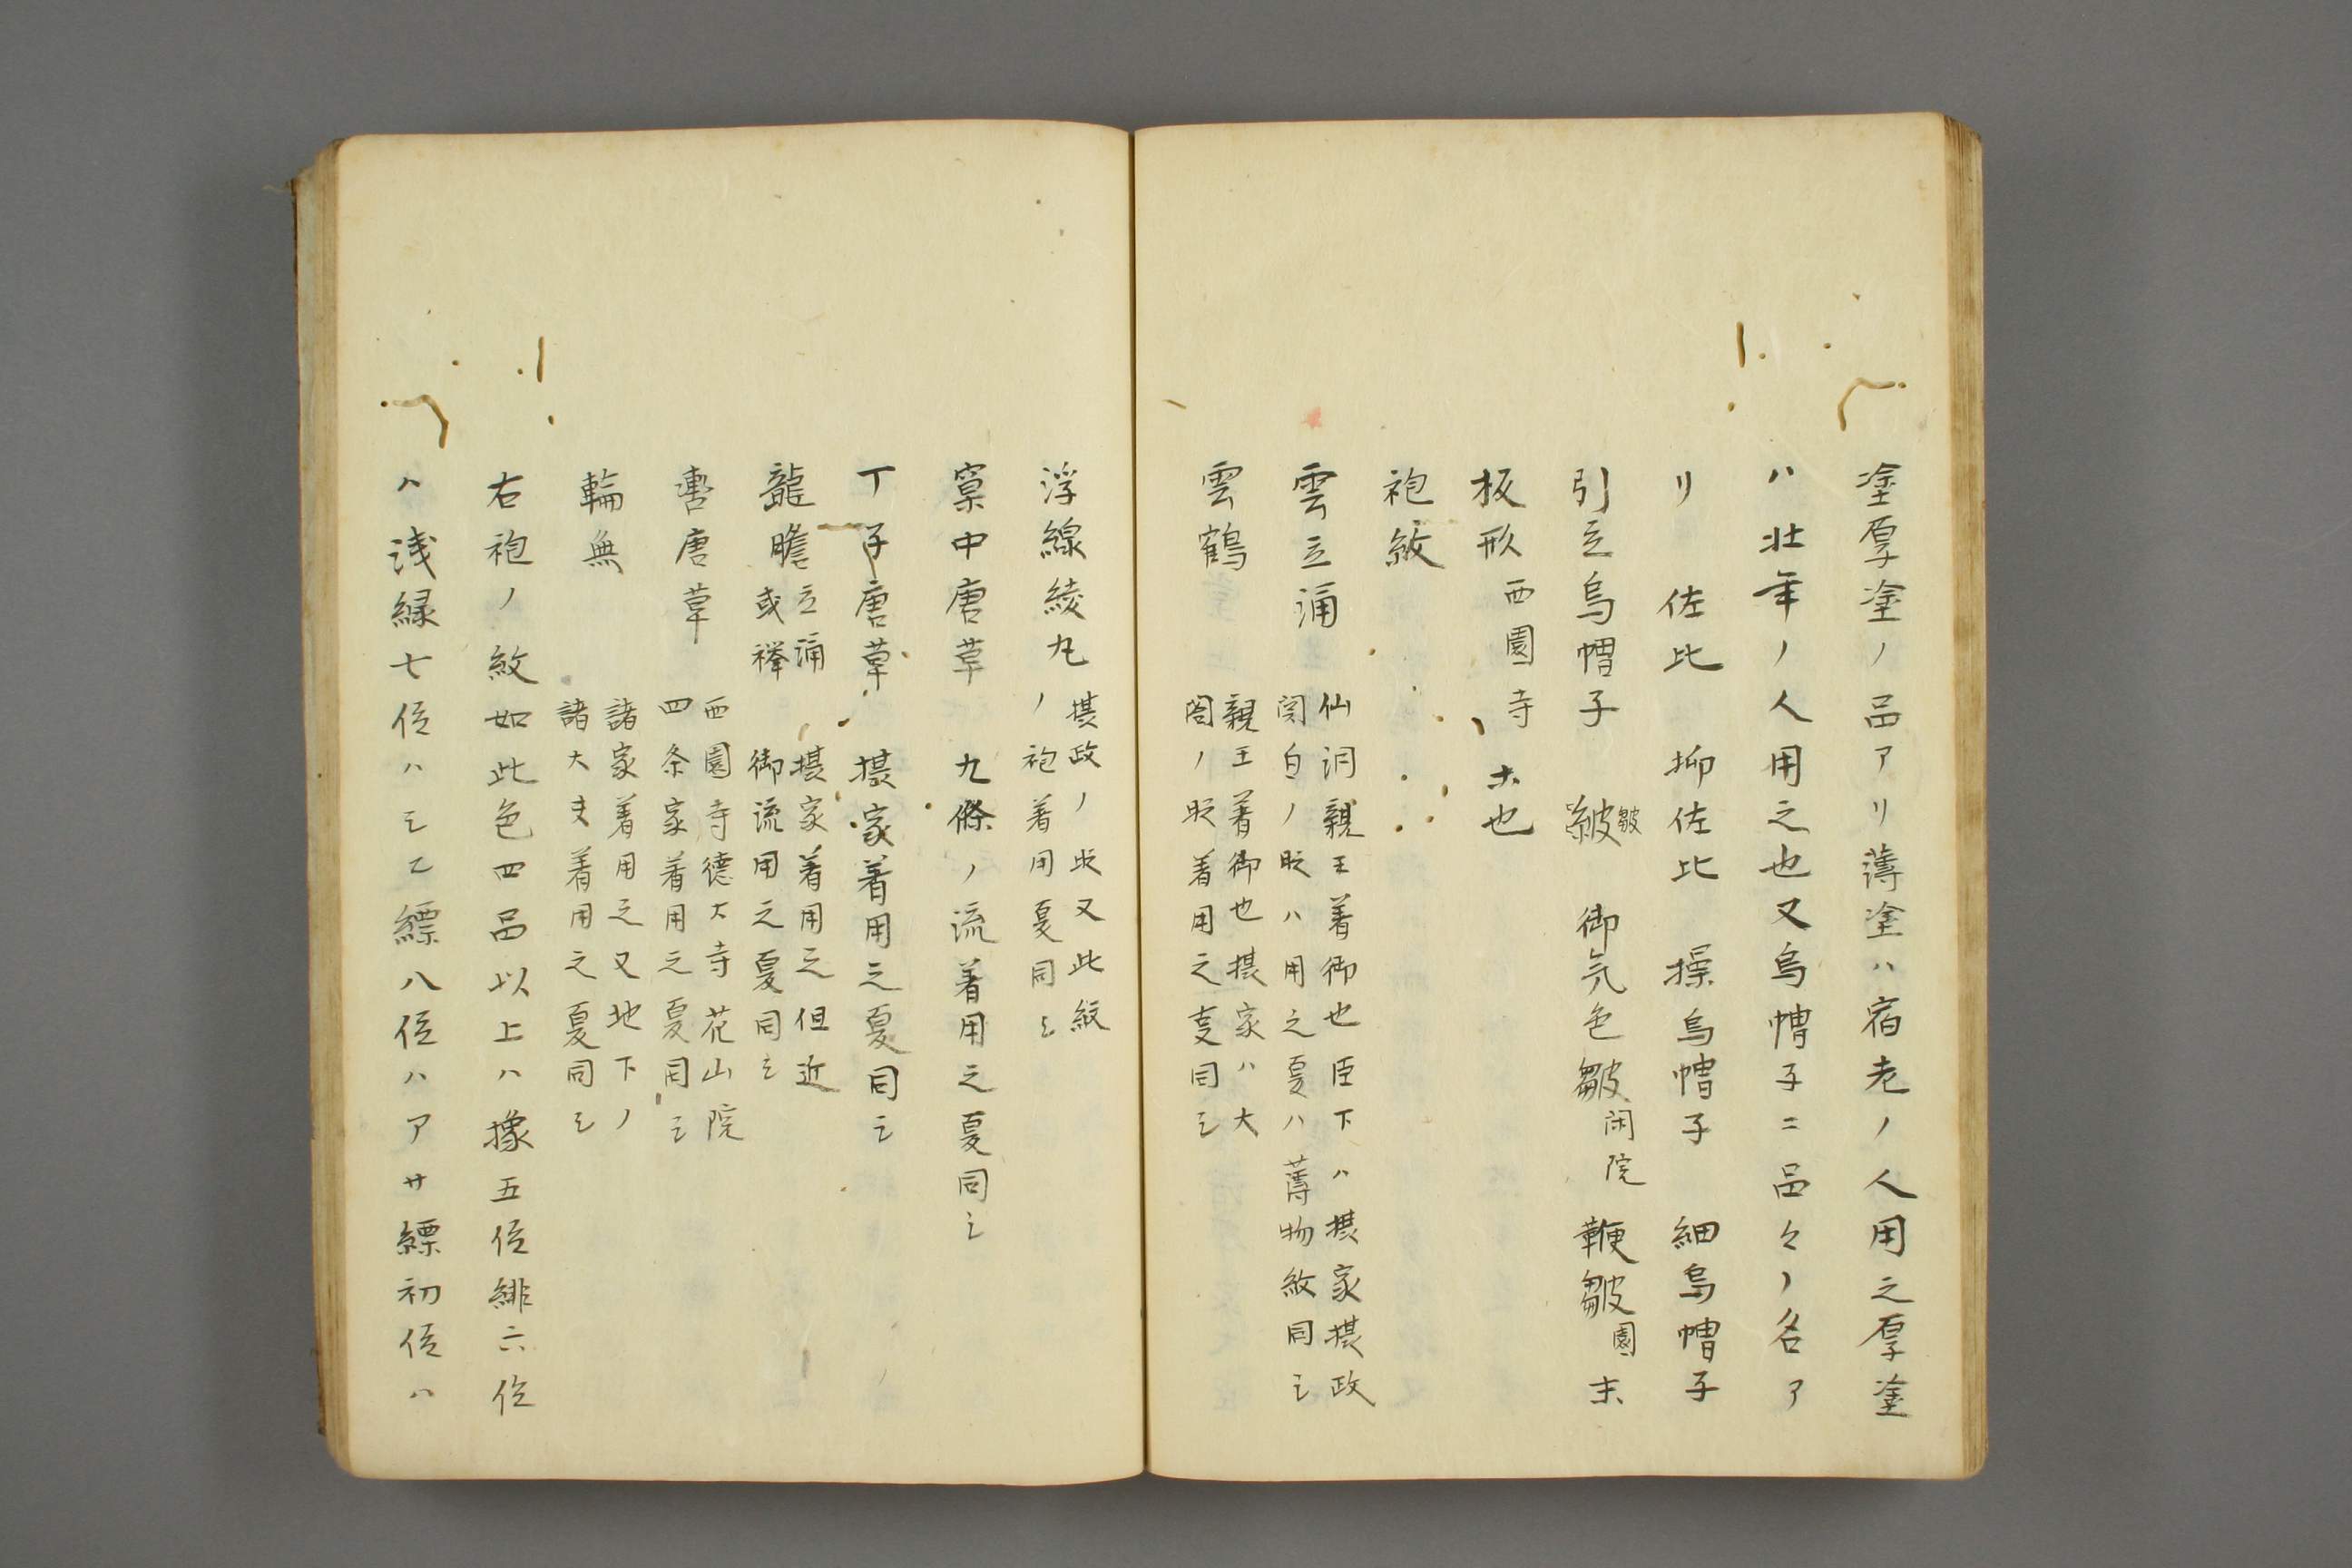 塗厚塗ノ品アリ薄塗ハ宿老ノ人用之厚塗
ハ壮年ノ人用之也又烏帽子ニ品々ノ名ア
リ　佐比　抑佐比　操烏帽子　細烏帽子
引立烏帽子　皺　御気色皺 閑院　鞭皺 園 末
皺
板形 西園寺 ホ也
袍紋
雲立涌
仙洞親王着御也臣下ハ摂家摂政
関白ノ時ハ用之夏ハ薄物紋同之
雲鶴
親王着御也摂家ハ大
閤ノ時着用之夏同之
浮線綾丸
摂政ノ時又此紋
ノ袍着用夏同之
窠中唐草　九條ノ流着用之夏同之
丁子唐草　摂家着用之夏同之
龍膽
立涌
或襷
摂家着用之但近
御流用之夏同之
轡唐草
西園寺徳大寺花山院
四条家着用之夏同之
輪無
諸家着用之又地下ノ
諸大夫着用之夏同之
右袍ノ紋如此色四品以上ハ橡五位緋六位
ハ浅緑七位ハミヒ縹八位ハアサ縹初位ハ